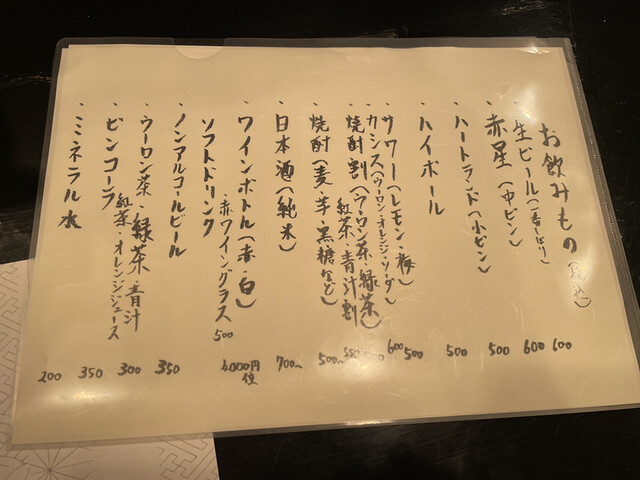 お飲みもの(税込)
・生ビール(一番しぼり) 600
・赤星(中ビン) 600
・ハートランド(小ビン) 500
・ハイボール 500
・サワー(レモン・梅) 500
・カシス(ウーロン・オレンジ・ソーダ) 600
・焼酎割(ウーロン茶・緑茶) 500
紅茶・青汁割 550
・焼酎(麦・芋・黒糖など) 500〜
・日本酒(純米) 700〜
・ワインボトル(赤・白) 4000円位
・赤ワイングラス 500
ソフトドリンク
・ノンアルコールビール 350
・ウーロン茶・緑茶・青汁 300
紅茶・オレンジジュース
・ビンコーラ 350
・ミネラル水 200